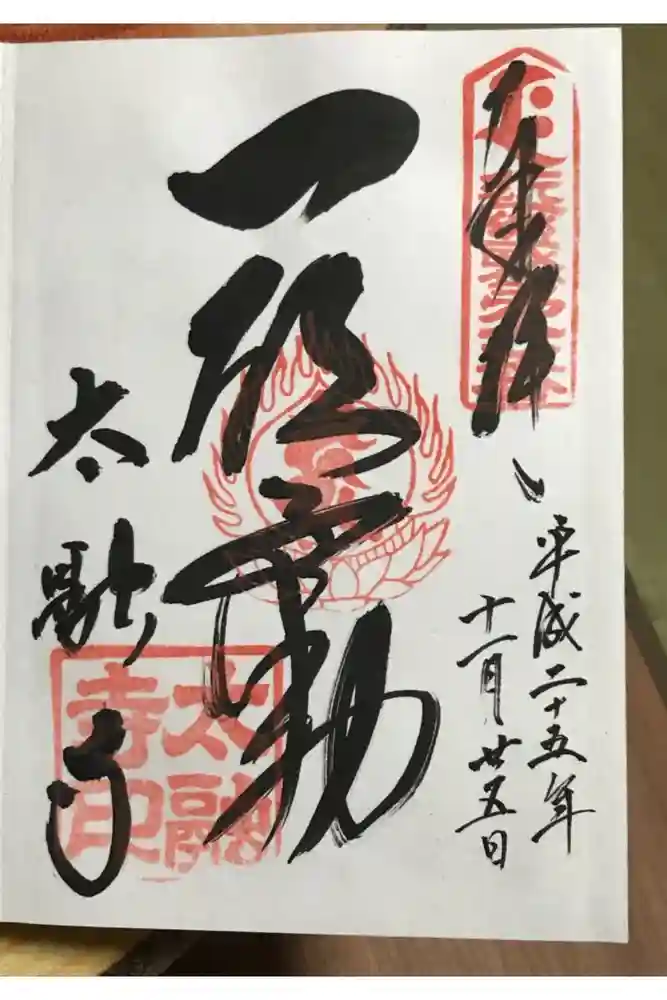 奉拝
平成二十五年
十一月廿五日
一願不動
太融寺
太融
寺印